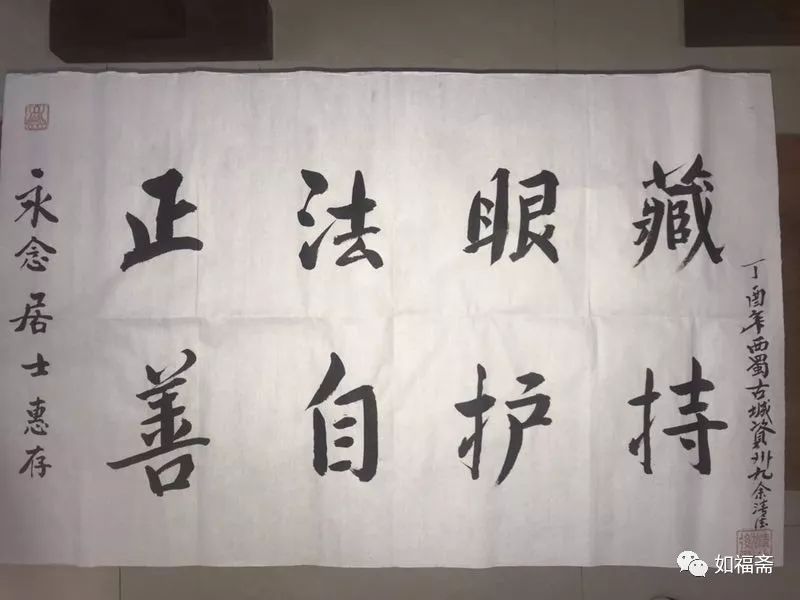 永念居士惠存
正法眼藏
善自护持
丁酉年西蜀古城資州九余清
如福斋